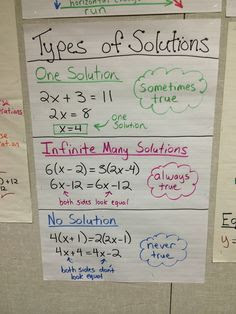 horizontal change
run
Types of Solutions
One Solution
2x + 3 = 11
2x = 8
x = 4
one Solution
Sometimes true
Infinite Many Solutions
6(x-2) = 3(2x-4)
6x-12 = 6x-12
both sides look equal
always true
No Solution
4(x+1) = 2(2x-1)
4x+4 = 4x-2
both sides don't look equal
never true
y =